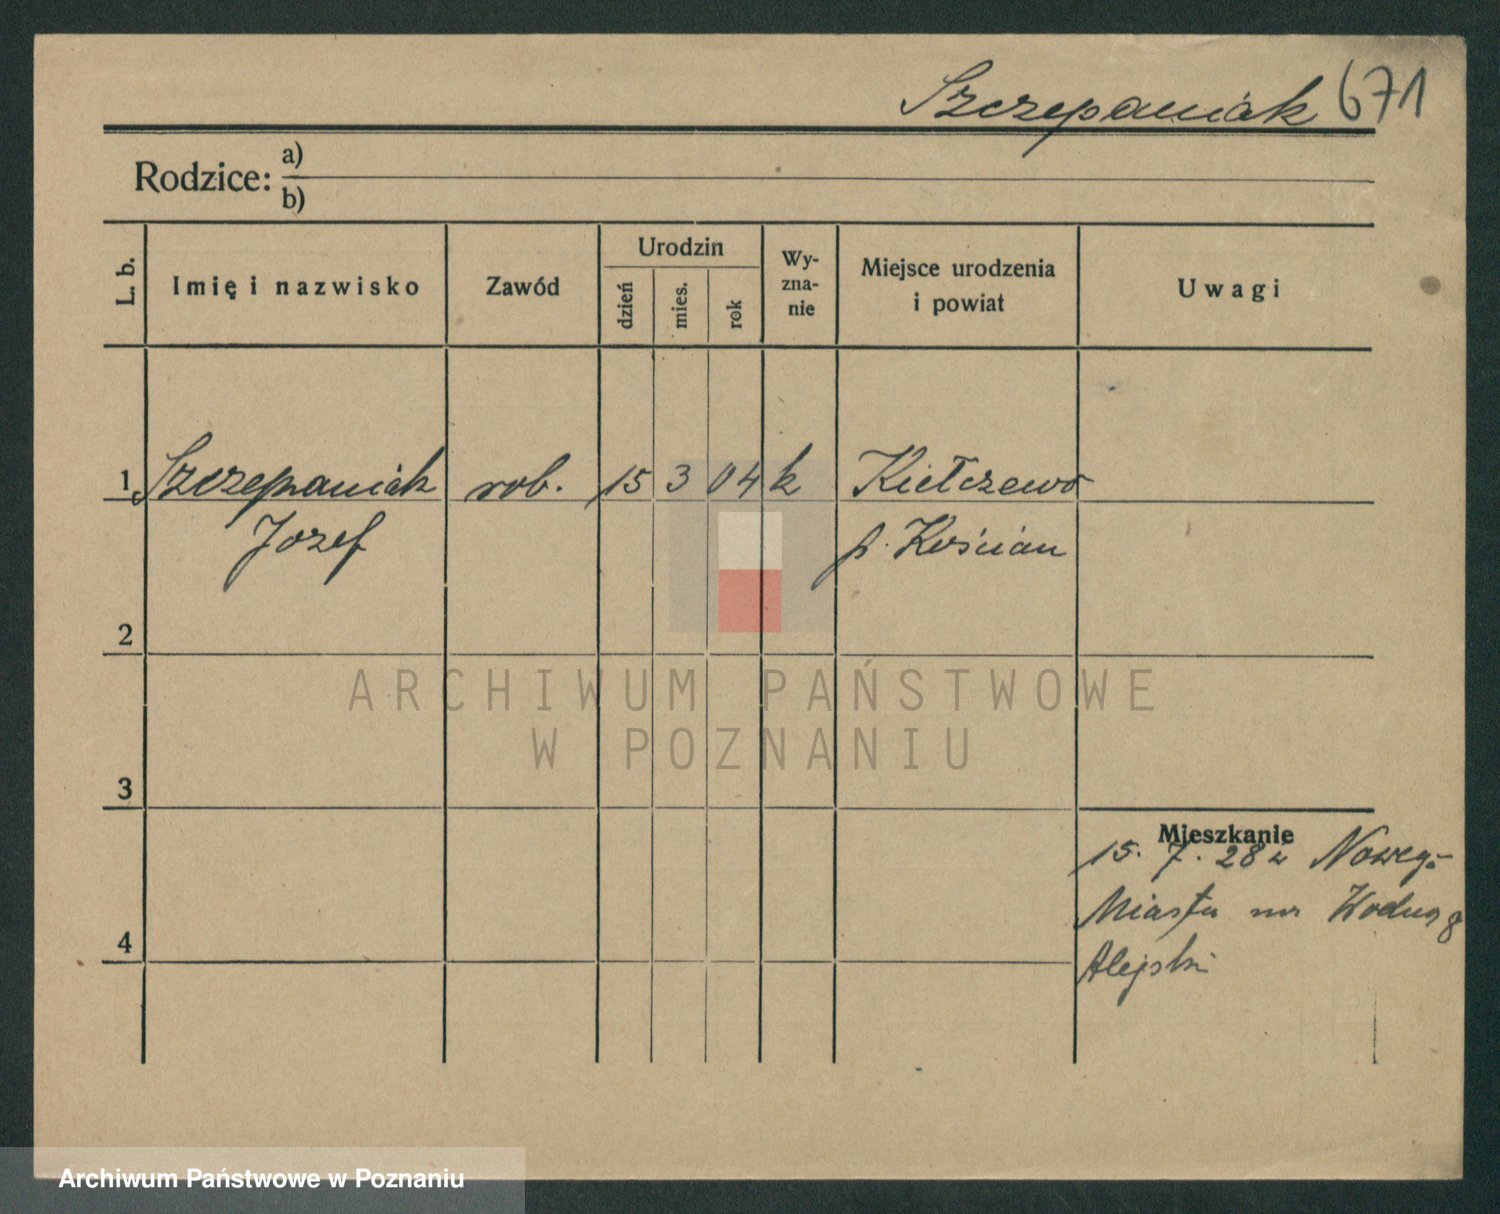 Szczepaniak 671
Rodzice: a)
b)
L. b.
Imię i nazwisko
Zawód
Urodzin
dzień
mies.
rok
Wy-
zna-
nie
Miejsce urodzenia
i powiat
Uwagi
1 Szczepaniak rob. 15 3 04 k Kiełczewo
Józef p. Kościan
2
ARCHIWUM PAŃSTWOWE
W POZNANIU
3
Mieszkanie
15. 7. 28 z Nowego
Miasta
4
Archiwum Państwowe w Poznaniu